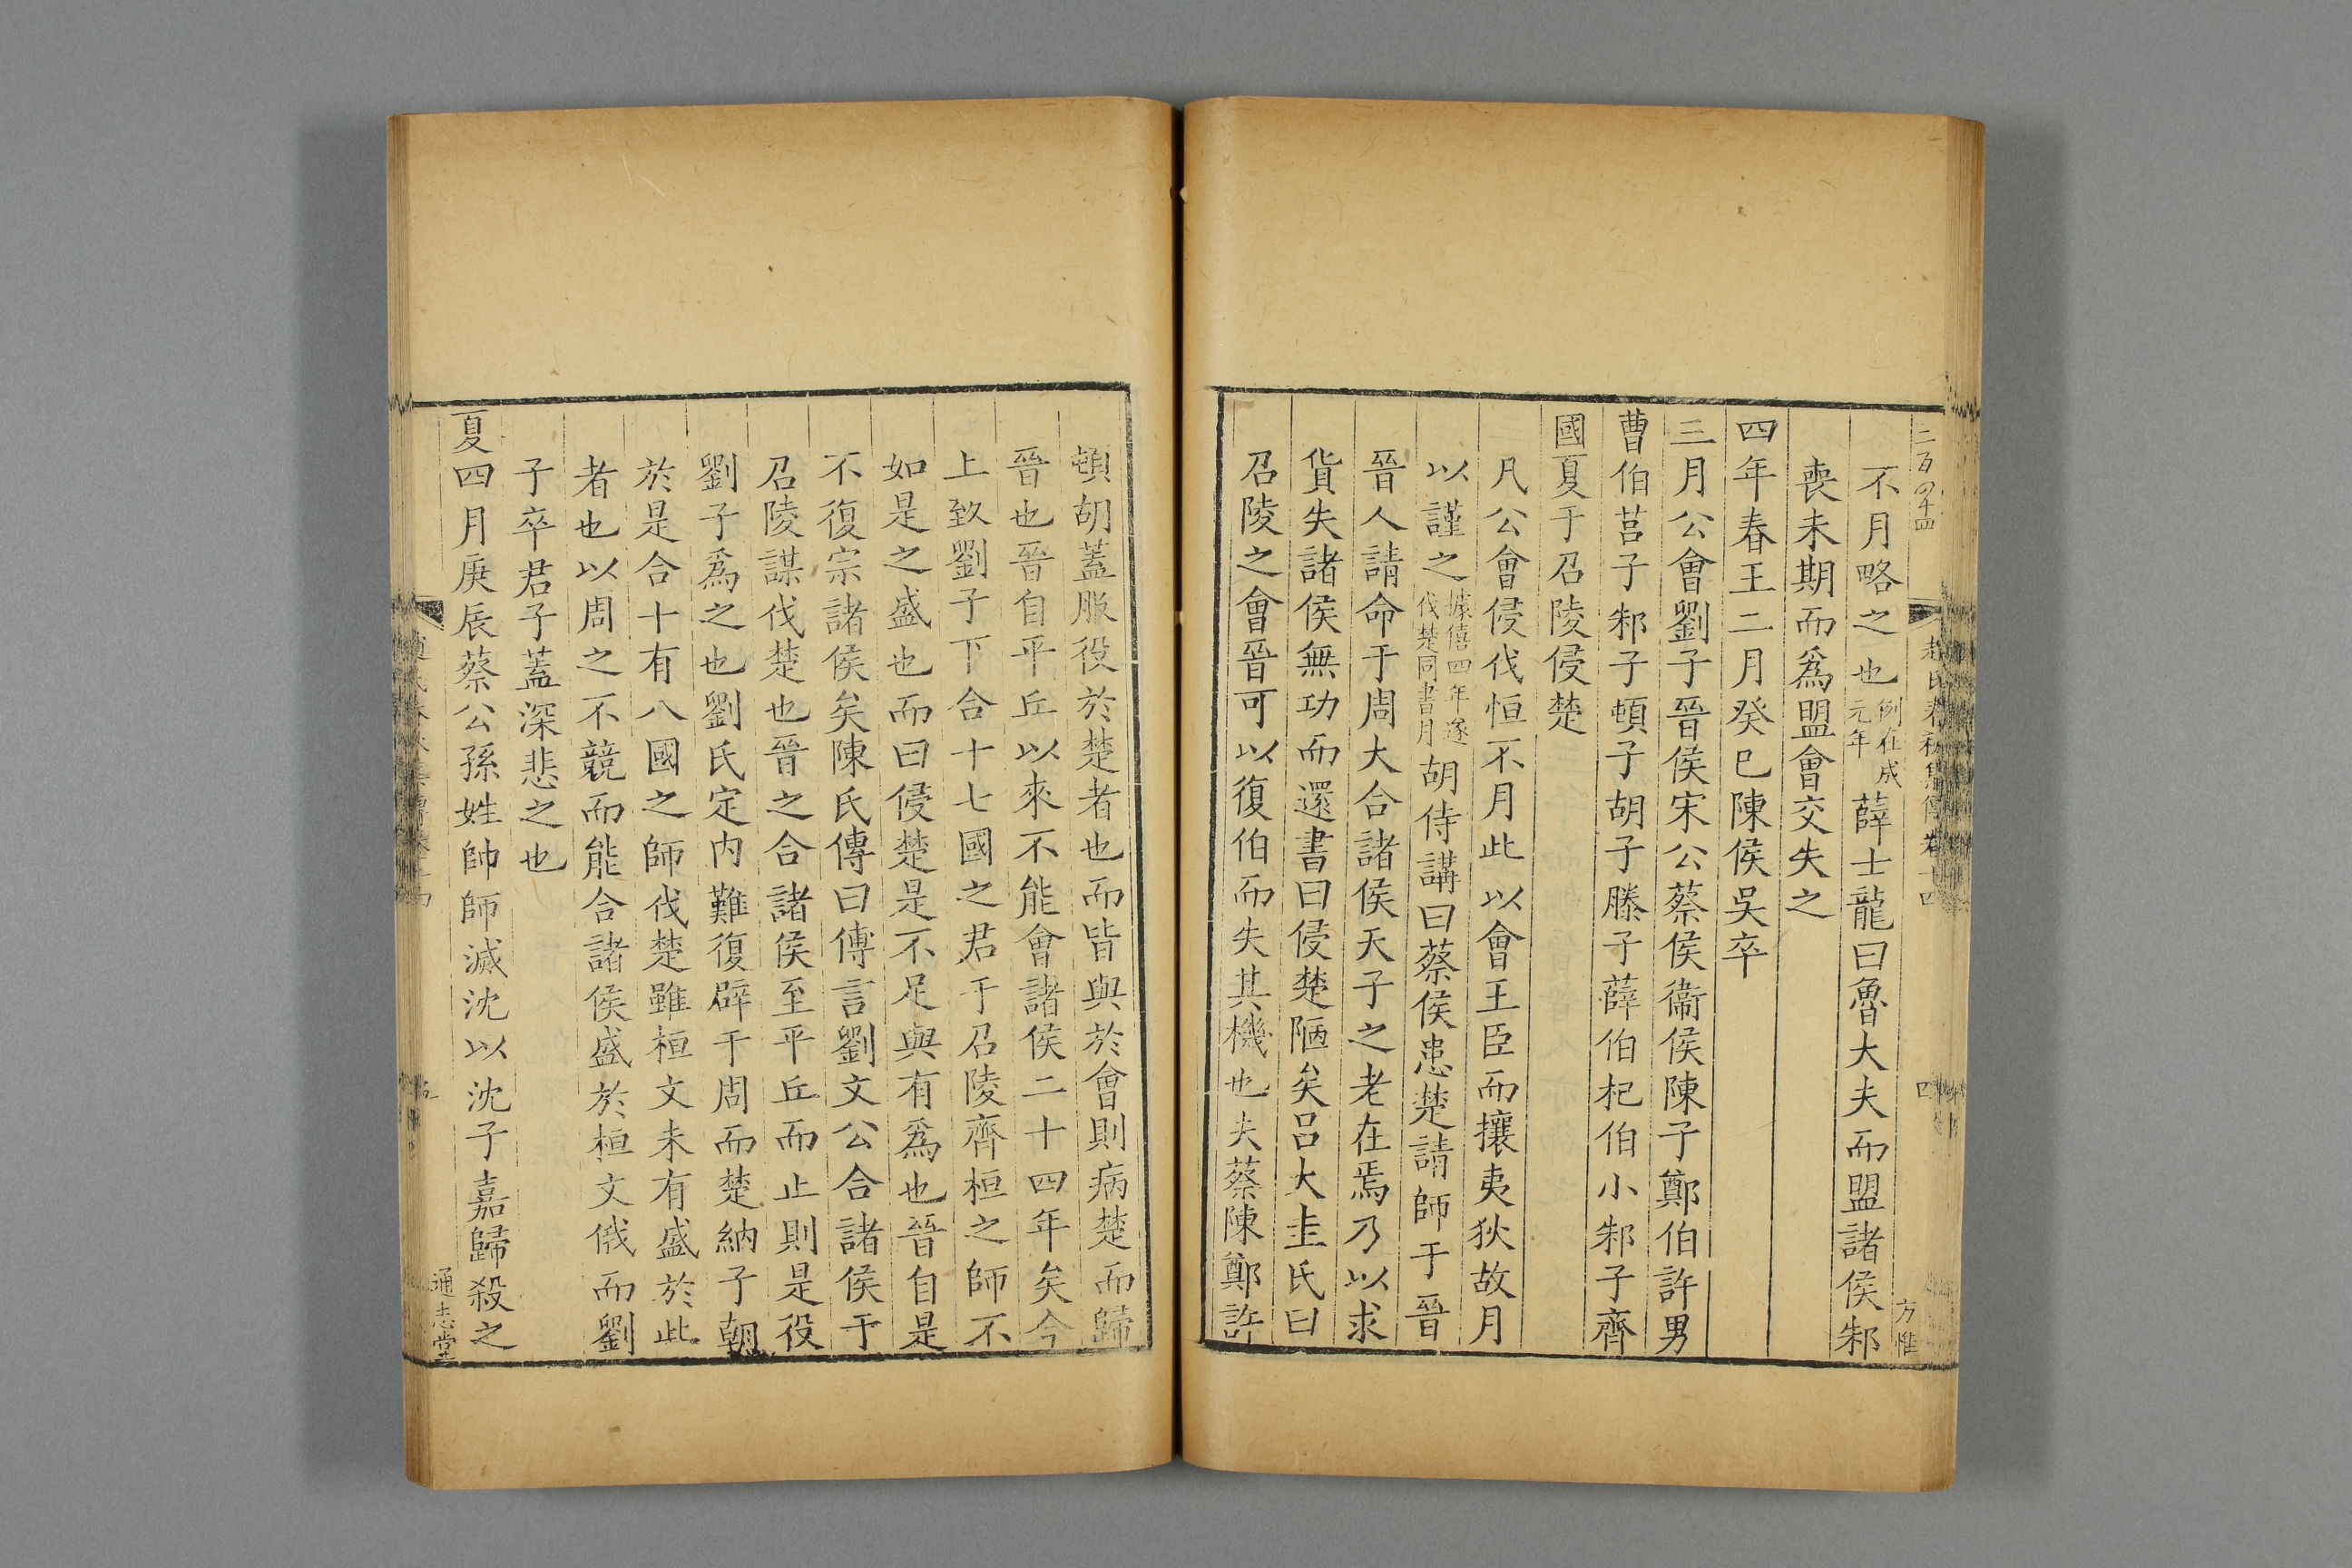 二百四十四
趙氏春秋集傳卷十四
四
方惟
不月略之也例在成元年薛士龍曰魯大夫而盟諸侯邾
喪未期而爲盟會交失之
四年春王二月癸巳陳侯吳卒
三月公會劉子晉侯宋公蔡侯衞侯陳子鄭伯許男
曹伯莒子邾子頓子胡子滕子薛伯杞伯小邾子齊
國夏于召陵侵楚
凡公會侵伐恒不月此以會王臣而攘夷狄故月
以謹之據僖四年遂伐楚同書月胡侍講曰蔡侯患楚請師于晉
晉人請命于周大合諸侯天子之老在焉乃以求
貨失諸侯無功而還書曰侵楚陋矣呂大圭氏曰
召陵之會晉可以復伯而失其機也夫蔡陳鄭許
頓胡蓋服役於楚者也而皆與於會則病楚而歸
晉也晉自平丘以來不能會諸侯二十四年矣今
上致劉子下合十七國之君于召陵齊桓之師不
如是之盛也而曰侵楚是不足與有爲也晉自是
不復宗諸侯矣陳氏傳曰傳言劉文公合諸侯于
召陵謀伐楚也晉之合諸侯至平丘而止則是役
劉子爲之也劉氏定內難復辟于周而楚納子朝
於是合十有八國之師伐楚雖桓文未有盛於此
者也以周之不競而能合諸侯盛於桓文俄而劉
子卒君子蓋深悲之也
夏四月庚辰蔡公孫姓帥師滅沈以沈子嘉歸殺之
五
通志堂